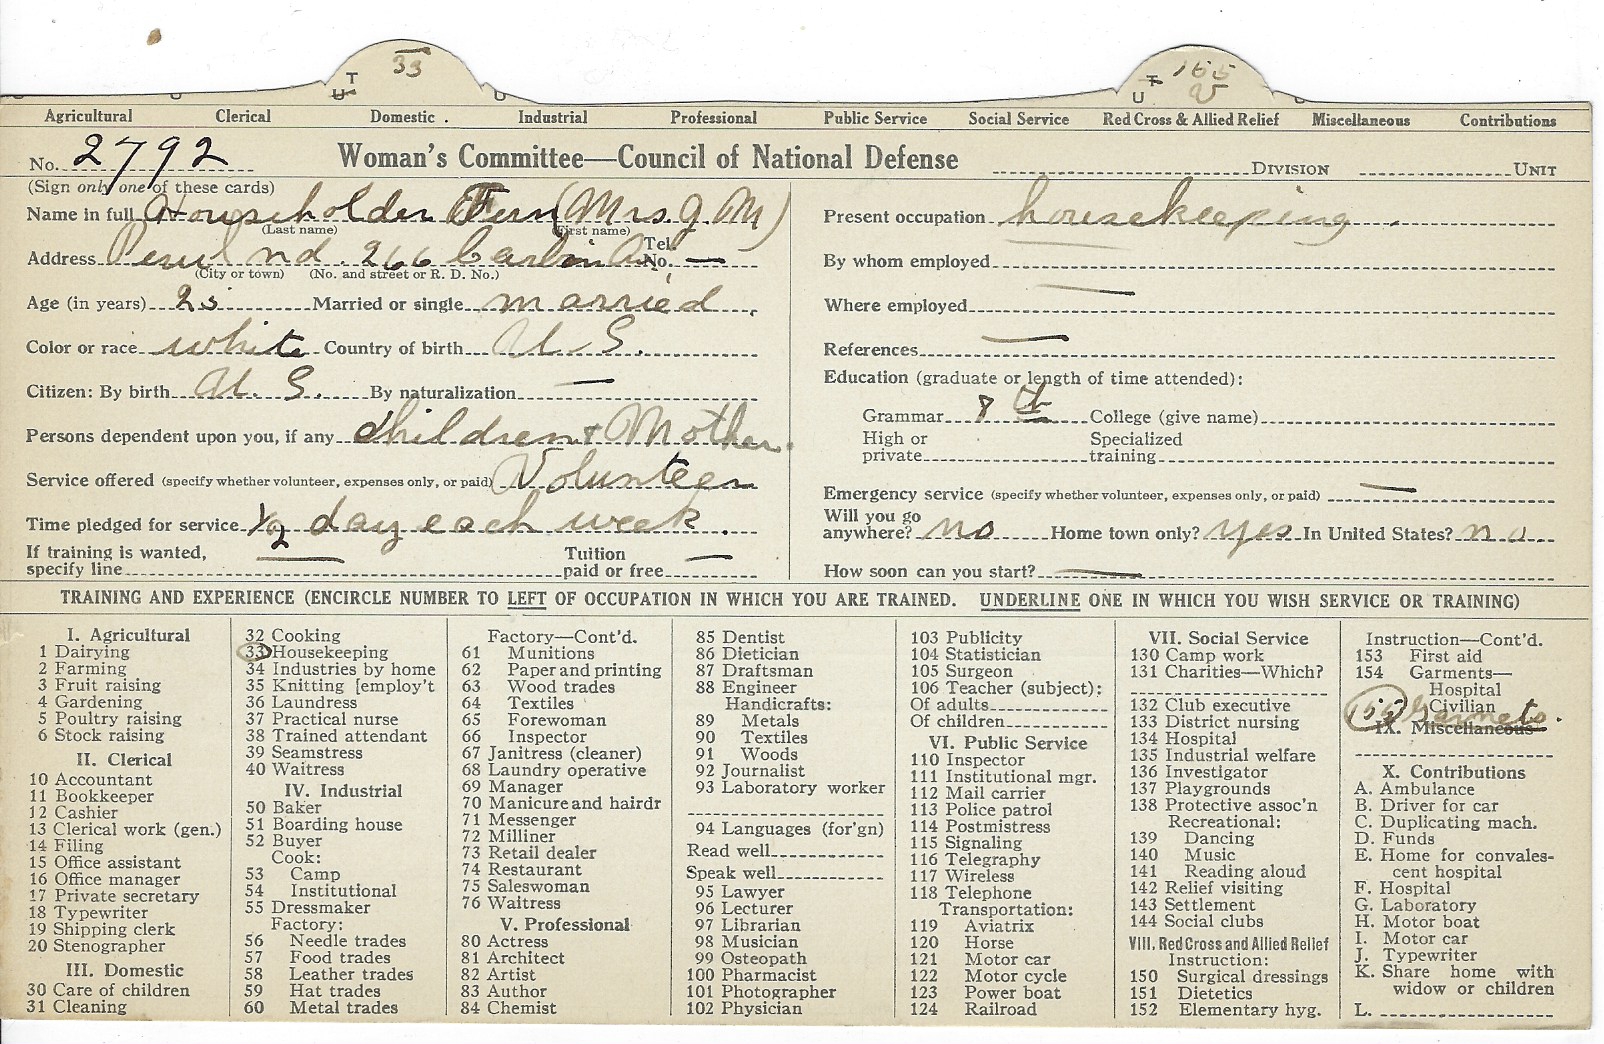 33
T
U
U
T
U
155
V
Agricultural Clerical Domestic . Industrial Professional Public Service Social Service Red Cross & Allied Relief Miscellaneous Contributions
No. 2792 Woman's Committee—Council of National Defense DIVISION UNIT
(Sign only one of these cards)
Name in full Householder Fern (Mrs. J. M)
(Last name) (First name)
Address Peru Ind. 266 Tel. No. —
(City or town) (No. and street or R. D. No.)
Age (in years) 25 Married or single married
Color or race white Country of birth U. S.
Citizen: By birth U. S. By naturalization —
Persons dependent upon you, if any Children + Mother.
Service offered (specify whether volunteer, expenses only, or paid) Volunteer
Time pledged for service 1/2 day each week.
If training is wanted, specify line — Tuition paid or free —
Present occupation housekeeping.
By whom employed —
Where employed —
References
Education (graduate or length of time attended):
Grammar 8th College (give name)
High or private Specialized training
Emergency service (specify whether volunteer, expenses only, or paid) —
Will you go anywhere? no Home town only? yes In United States? no
How soon can you start? —
TRAINING AND EXPERIENCE (ENCIRCLE NUMBER TO LEFT OF OCCUPATION IN WHICH YOU ARE TRAINED. UNDERLINE ONE IN WHICH YOU WISH SERVICE OR TRAINING)
I. Agricultural
1 Dairying
2 Farming
3 Fruit raising
4 Gardening
5 Poultry raising
6 Stock raising
II. Clerical
10 Accountant
11 Bookkeeper
12 Cashier
13 Clerical work (gen.)
14 Filing
15 Office assistant
16 Office manager
17 Private secretary
18 Typewriter
19 Shipping clerk
20 Stenographer
III. Domestic
30 Care of children
31 Cleaning
32 Cooking
33 Housekeeping
34 Industries by home
35 Knitting [employ't
36 Laundress
37 Practical nurse
38 Trained attendant
39 Seamstress
40 Waitress
IV. Industrial
50 Baker
51 Boarding house
52 Buyer
Cook:
53 Camp
54 Institutional
55 Dressmaker
Factory:
56 Needle trades
57 Food trades
58 Leather trades
59 Hat trades
60 Metal trades
Factory—Cont'd.
61 Munitions
62 Paper and printing
63 Wood trades
64 Textiles
65 Forewoman
66 Inspector
67 Janitress (cleaner)
68 Laundry operative
69 Manager
70 Manicure and hairdr
71 Messenger
72 Milliner
73 Retail dealer
74 Restaurant
75 Saleswoman
76 Waitress
V. Professional
80 Actress
81 Architect
82 Artist
83 Author
84 Chemist
85 Dentist
86 Dietician
87 Draftsman
88 Engineer
Handicrafts:
89 Metals
90 Textiles
91 Woods
92 Journalist
93 Laboratory worker
94 Languages (for'gn)
Read well
Speak well
95 Lawyer
96 Lecturer
97 Librarian
98 Musician
99 Osteopath
100 Pharmacist
101 Photographer
102 Physician
103 Publicity
104 Statistician
105 Surgeon
106 Teacher (subject):
Of adults
Of children
VI. Public Service
110 Inspector
111 Institutional mgr.
112 Mail carrier
113 Police patrol
114 Postmistress
115 Signaling
116 Telegraphy
117 Wireless
118 Telephone
Transportation:
119 Aviatrix
120 Horse
121 Motor car
122 Motor cycle
123 Power boat
124 Railroad
VII. Social Service
130 Camp work
131 Charities—Which?
132 Club executive
133 District nursing
134 Hospital
135 Industrial welfare
136 Investigator
137 Playgrounds
138 Protective assoc'n
Recreational:
139 Dancing
140 Music
141 Reading aloud
142 Relief visiting
143 Settlement
144 Social clubs
VIII. Red Cross and Allied Relief
Instruction:
150 Surgical dressings
151 Dietetics
152 Elementary hyg.
Instruction—Cont'd.
153 First aid
154 Garments—
Hospital
Civilian
155 Garments.
IX. Miscellaneous
X. Contributions
A. Ambulance
B. Driver for car
C. Duplicating mach.
D. Funds
E. Home for convales-
cent hospital
F. Hospital
G. Laboratory
H. Motor boat
I. Motor car
J. Typewriter
K. Share home with
widow or children
L.